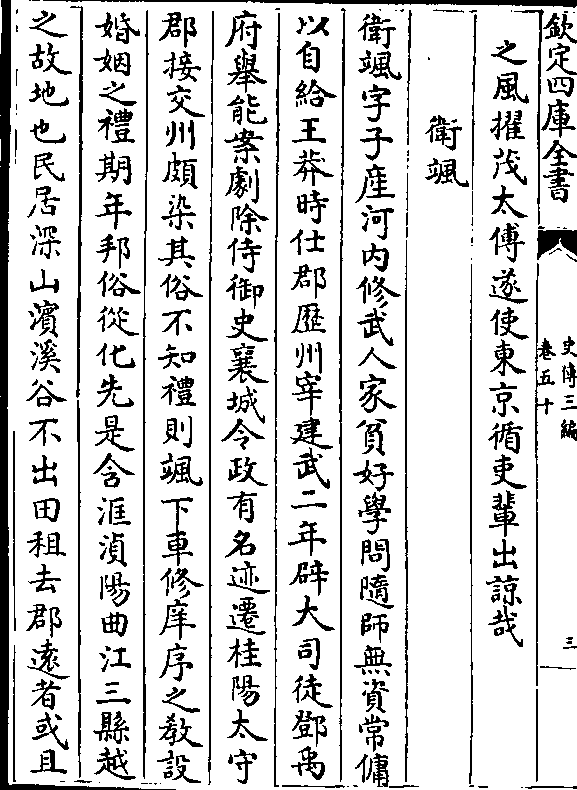 欽定四庫全書
史傳三編
卷五十
三
之風擢茂太傅遂使東京循吏輩出諒哉
衛颯
衛颯字子産河内修武人家貧好學問隨師無資常傭
以自給王莽時仕郡歴州宰建武二年辟大司徒鄧禹
府舉能案劇除侍御史襄城令政有名迹遷桂陽太守
郡接交州頗染其俗不知禮則颯下車修庠序之教設
婚姻之禮期年邦俗從化先是含洭湞陽曲江三縣越
之故地也民居深山濱溪谷不出田租去郡遠者或且